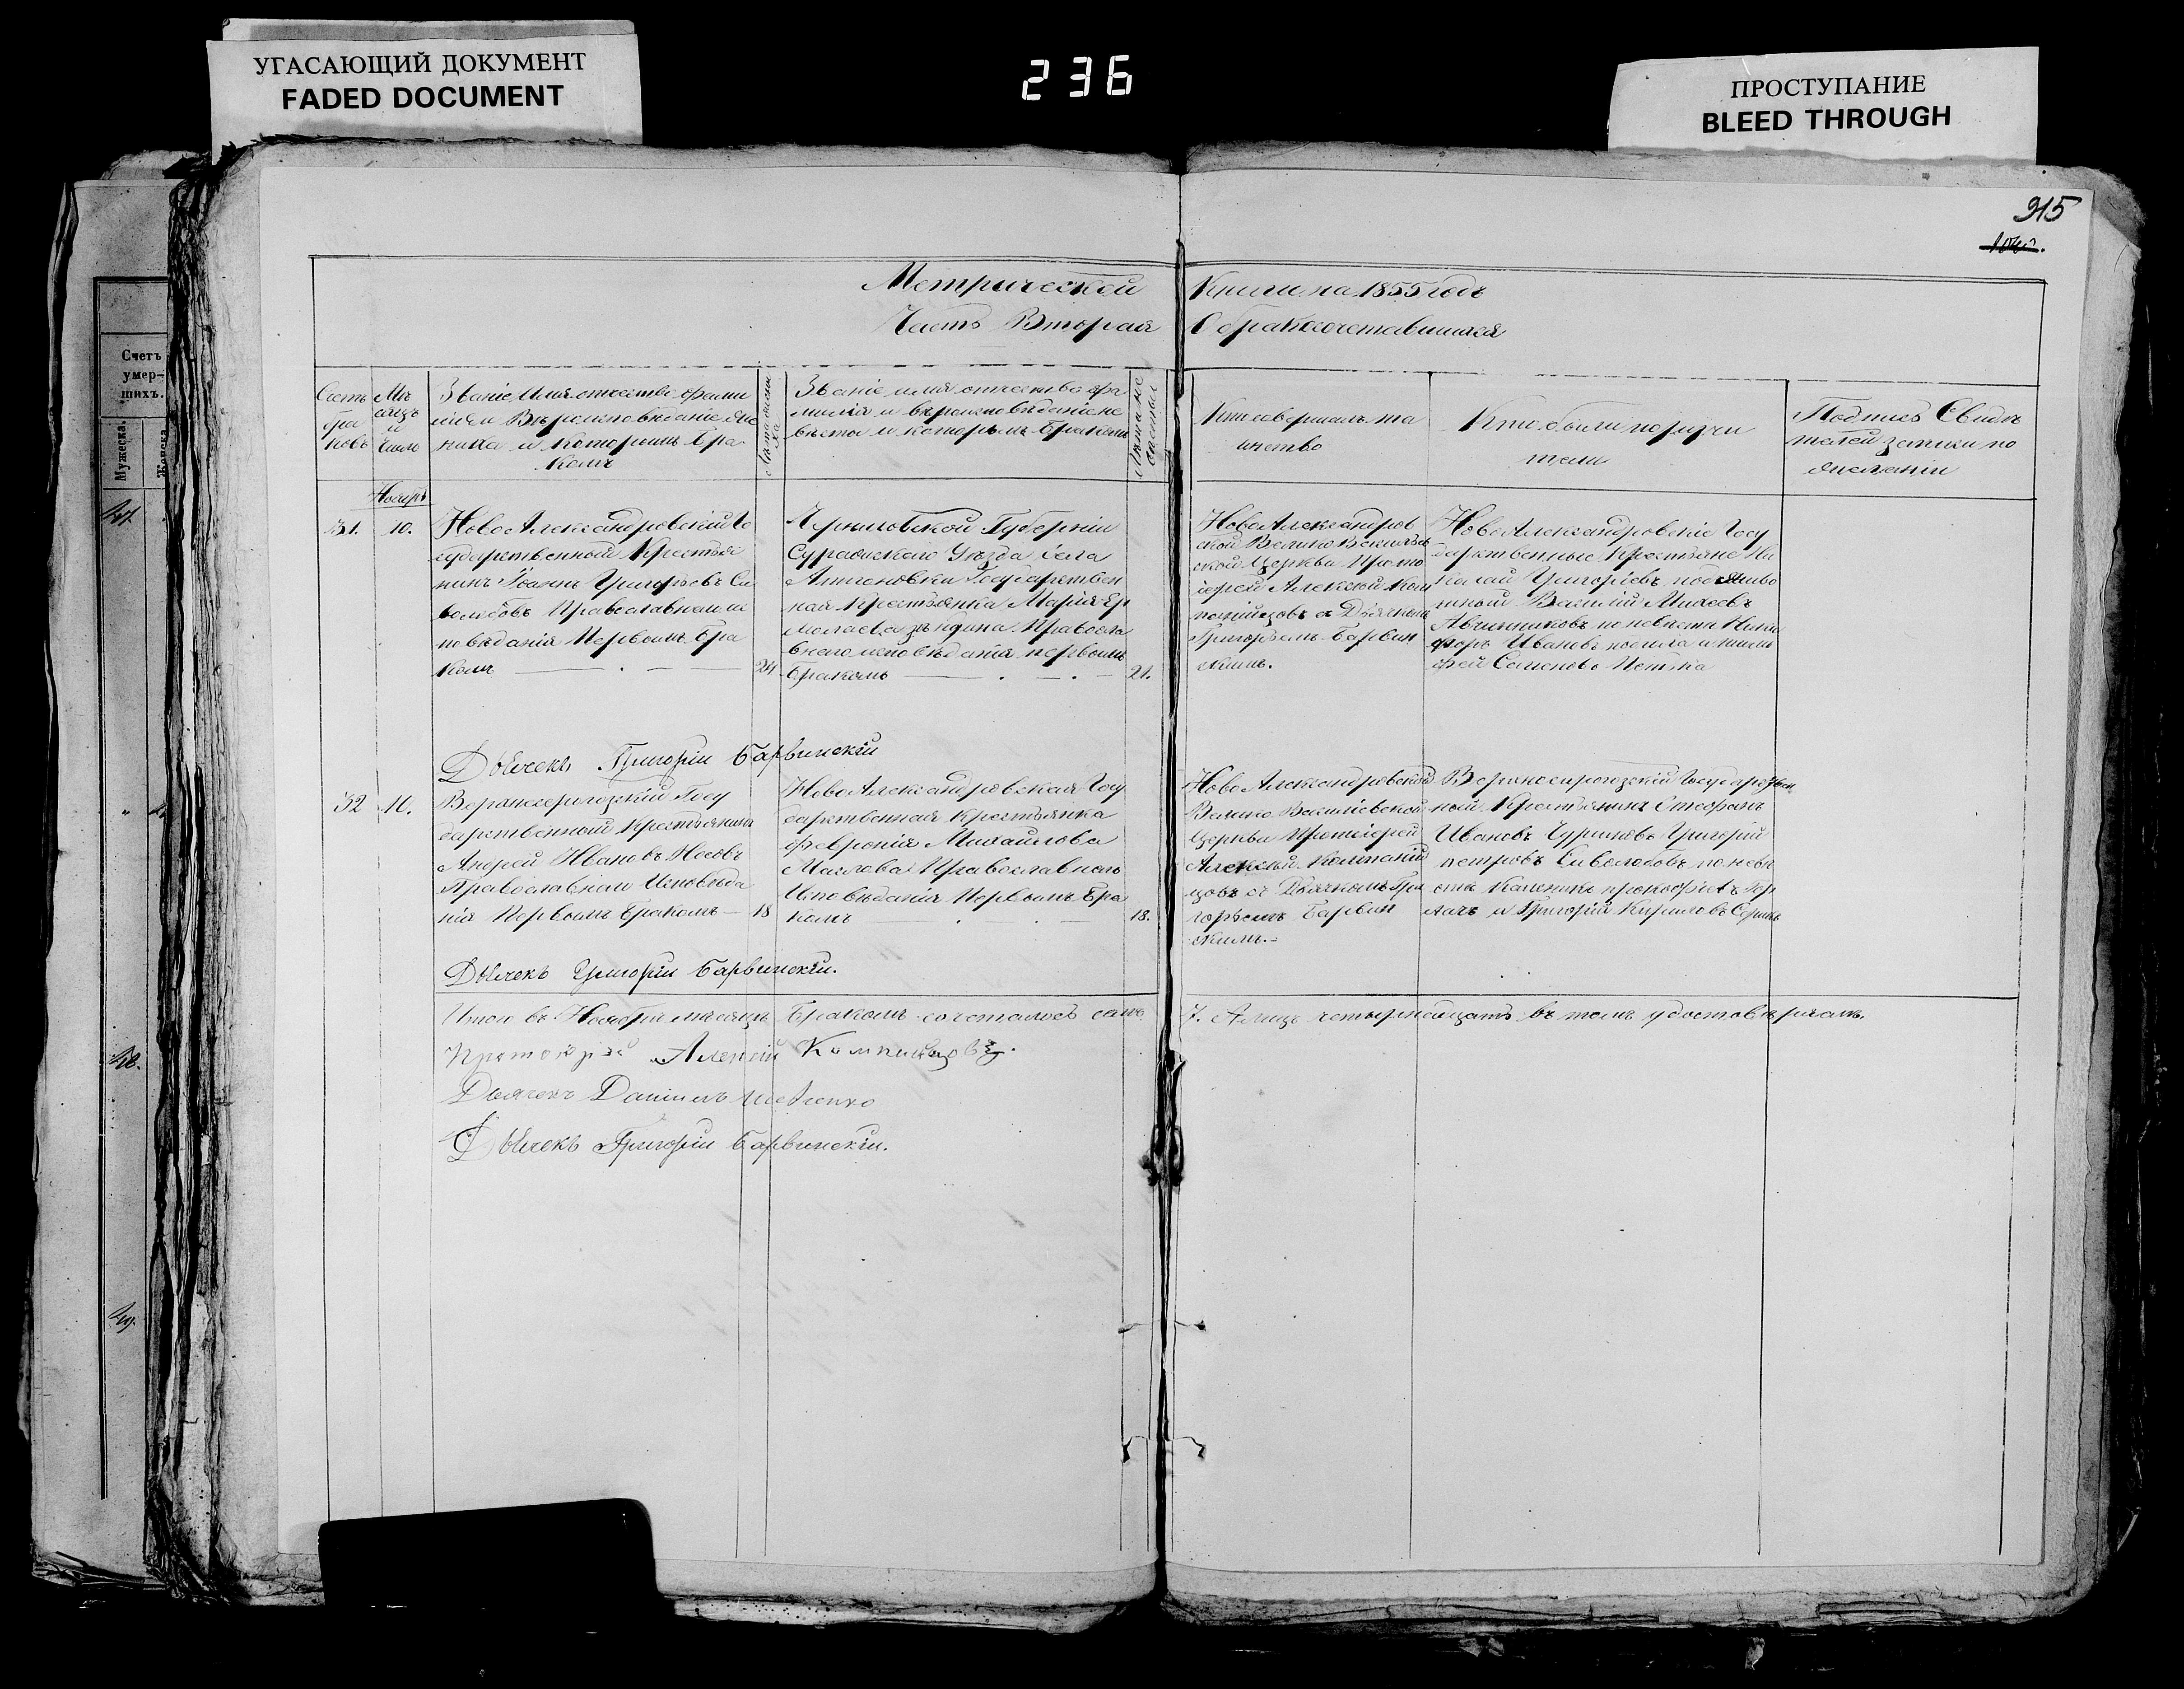 УГАСАЮЩИЙ ДОКУМЕНТ
FADED DOCUMENT
236
ПРОСТУПАНИЕ
BLEED THROUGH
915
Счетъ
умер-
шихъ.
Мужеска.
Женска
47.
48.
49.
Метрической Книги на 1855 годъ
Часть Вторая О бракосочетавшихся
Счетъ
бра
ковъ
Мѣ
сяцъ
и
число
Званіе Имя отчество фами
лія и Вѣроисповѣданіе же
ниха и которымъ бра
комъ
Лѣта жени
ха
Званіе имя отчество фа
милія и вѣроисповѣданіе не
вѣсты и которымъ бракомъ
Лѣта не
вѣсты
Кто совершалъ та
инство
Кто были поручи
тели
Подпись Свидѣ
телей записи по
желанію
Ноября
31.
10.
Ново Александровскій Го
сударственный Крестья
нинъ Іоаннъ Григорьевъ Си
волобовъ Православнаго ис
повѣданія Первымъ бра
комъ
24
Черниговской Губерніи
Суражскаго Уѣзда села
Антоновки Государствен
ная Крестьянка Марія Ер
молаева Православ
наго исповѣданія первымъ
бракомъ
21.
Ново Александров
ской Велико Васильев
ской Церкви Прото
іерей Алексѣй Ком
панійцовъ съ Дьячкомъ
Григоріемъ Барвин
скимъ.
Ново Александровскіе Госу
дарственные Крестьяне Ни
колай Григорьевъ
Василій Михеевъ
Авчинниковъ по невѣсти Ники
форъ Ивановъ
фей Семеновъ
Дьячекъ Григорій Барвинскій
32
10.
Верхнесерогозскій Госу
дарственный Крестьянинъ
Андрей Ивановъ Носовъ
Православнаго Исповѣда
нія Первымъ бракомъ
18
Ново Александровская Госу
дарственная Крестьянка
Февронія Михайлова
Маслова Православнаго
Исповѣданія Первымъ Бра
комъ
18.
Ново Александровской
Велико Васильевской
Церкви Протоіерей
Алексѣй Компаній
цовъ съ Дьячкомъ Гри
горьемъ Барвин
скимъ.
Верхнесерогозскій Государствен
ный Крестьянинъ Стефанъ
Ивановъ Чуриковъ Григорій
Петровъ Сиволобовъ по невѣ
сты
и Григорій Кириловъ
Дьячекъ Григорій Барвинскій.
Итого въ Ноябрѣ мѣсяцѣ Бракомъ сочеталось семь 7. А лицъ четырнадцать въ томъ удостовѣряемъ.
Протоіерей Алексій Компанійцовъ.
Дьячекъ Даніилъ Шевченко
Дьячекъ Григорій Барвинскій.